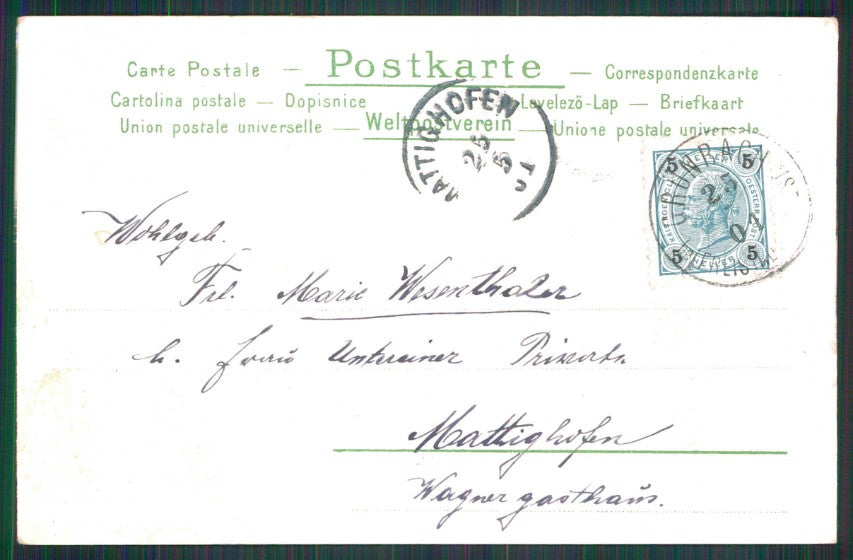 Postkarte
Carte Postale — — Correspondenzkarte
Cartolina postale — Dopisnice Levelező-Lap — Briefkaart
Union postale universelle — Weltpostverein — Unione postale universale
MATTIGHOFEN
25 5 01
5 5
5 HELLER 5
25
01
Wohlgeb.
Frl. Marie Wesenthaler
b. Frau Untereiner Private
Mattighofen
Wagnergasthaus.